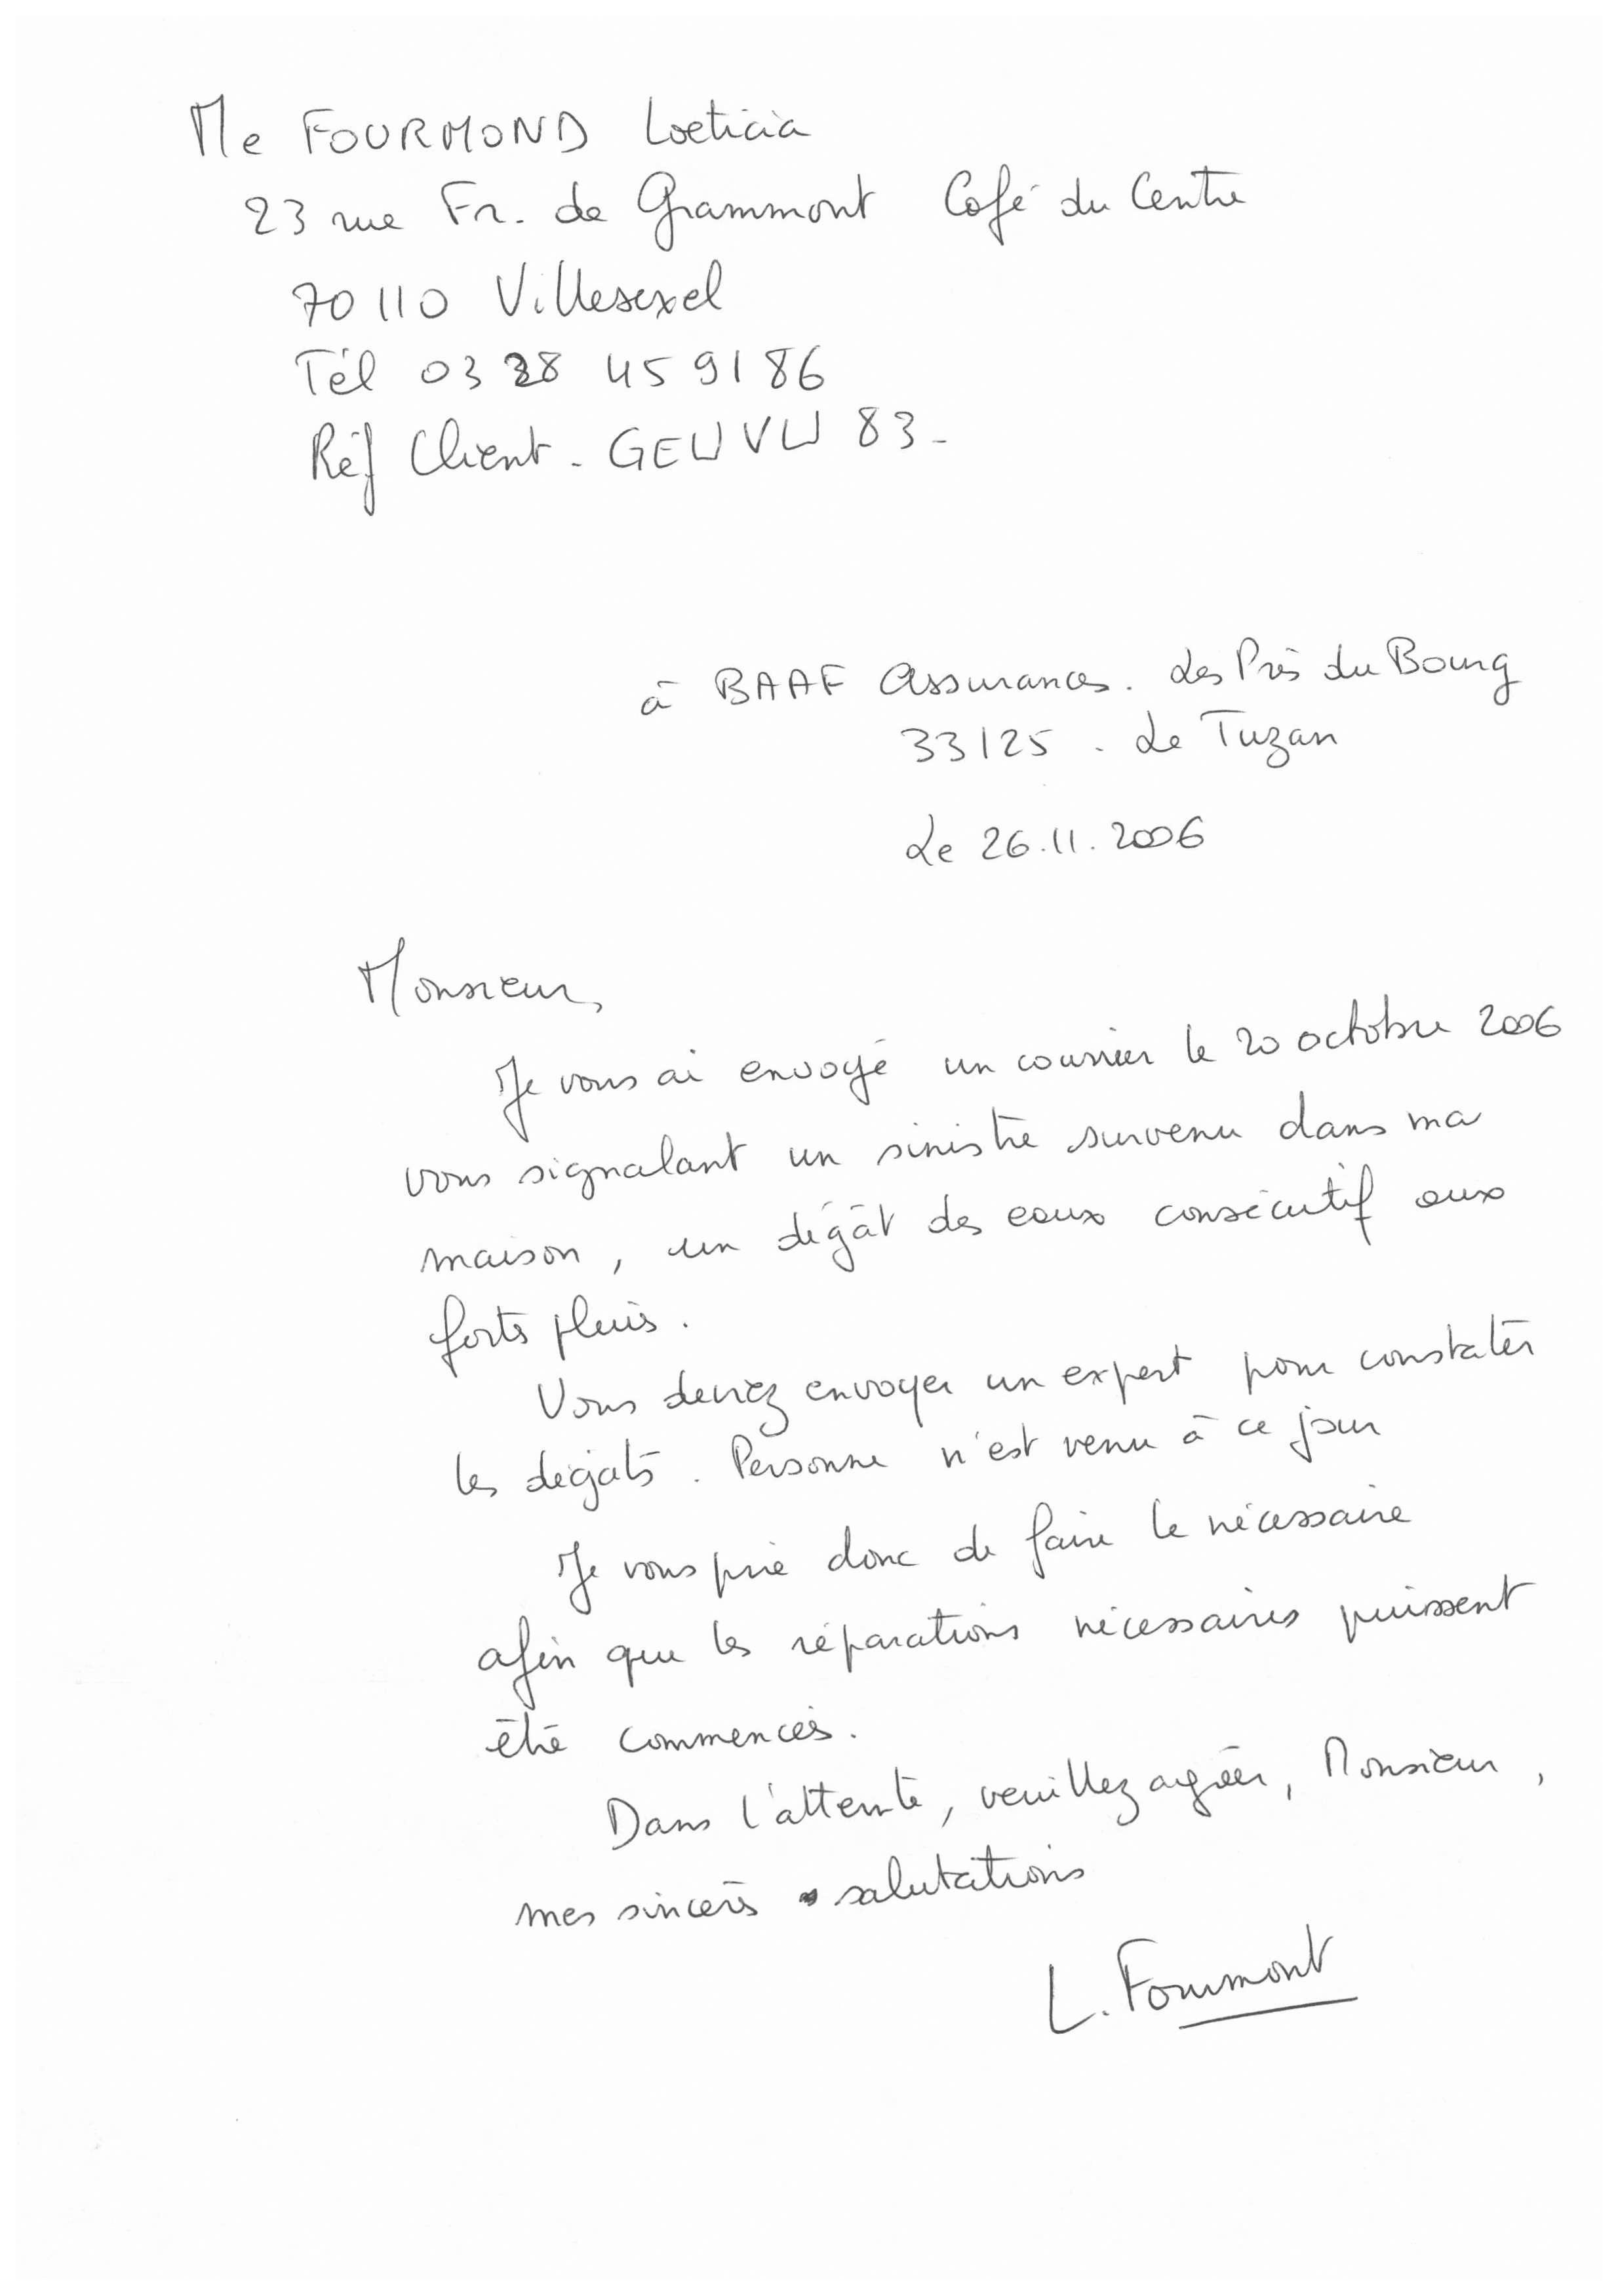 Me FOURMOND Loeticia
23 rue Fr. de Grammont Café du Centre
70110 Villesexel
Tél 03 28 45 91 86
Réf Client - GEWVW 83 -
à BAAF Assurances. Les Près du Bourg
33125 - Le Tuzan
Le 26.11.2006
Monsieur,
Je vous ai envoyé un courrier le 20 octobre 2006
vous signalant un sinistre survenu dans ma
maison, un dégât des eaux consécutif aux
fortes pluies.
Vous deviez envoyer un expert pour constater
les dégats. Personne n'est venu à ce jour
Je vous prie donc de faire le nécessaire
afin que les réparations nécessaires puissent
être commencés.
Dans l'attente, veuillez agréer, Monsieur,
mes sincères salutations
L. Fourmont